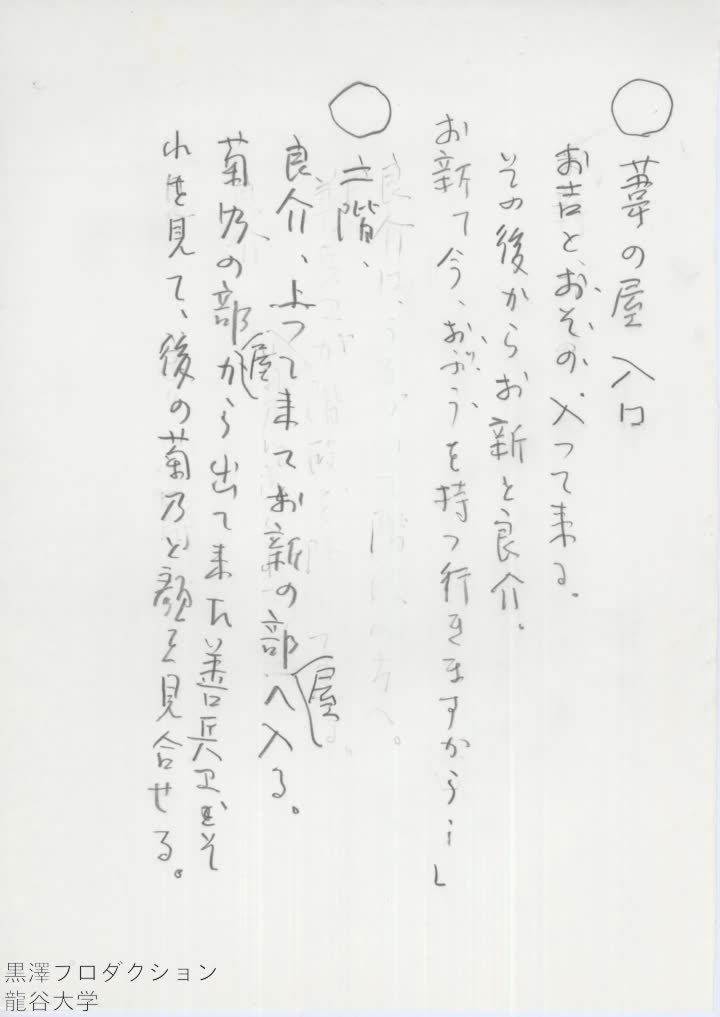 ○ 葦の屋 入口
お吉と、おその、入って来る。
その後からお新と良介。
お新て今、おぶうを持つ行きますから…」
○ 二階、
良介、上って来てお新の部屋へ入る。
菊乃の部屋から出て来た善兵卫がそ
れを見て、後の菊乃と顔を見合せる。
黒澤プロダクション
龍谷大学